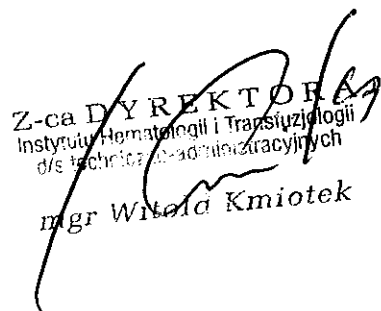 Z-ca DYREKTORA
Instytutu Hematologii i Transfuzjologii
d/s techniczno-administracyjnych
mgr Witold Kmiotek